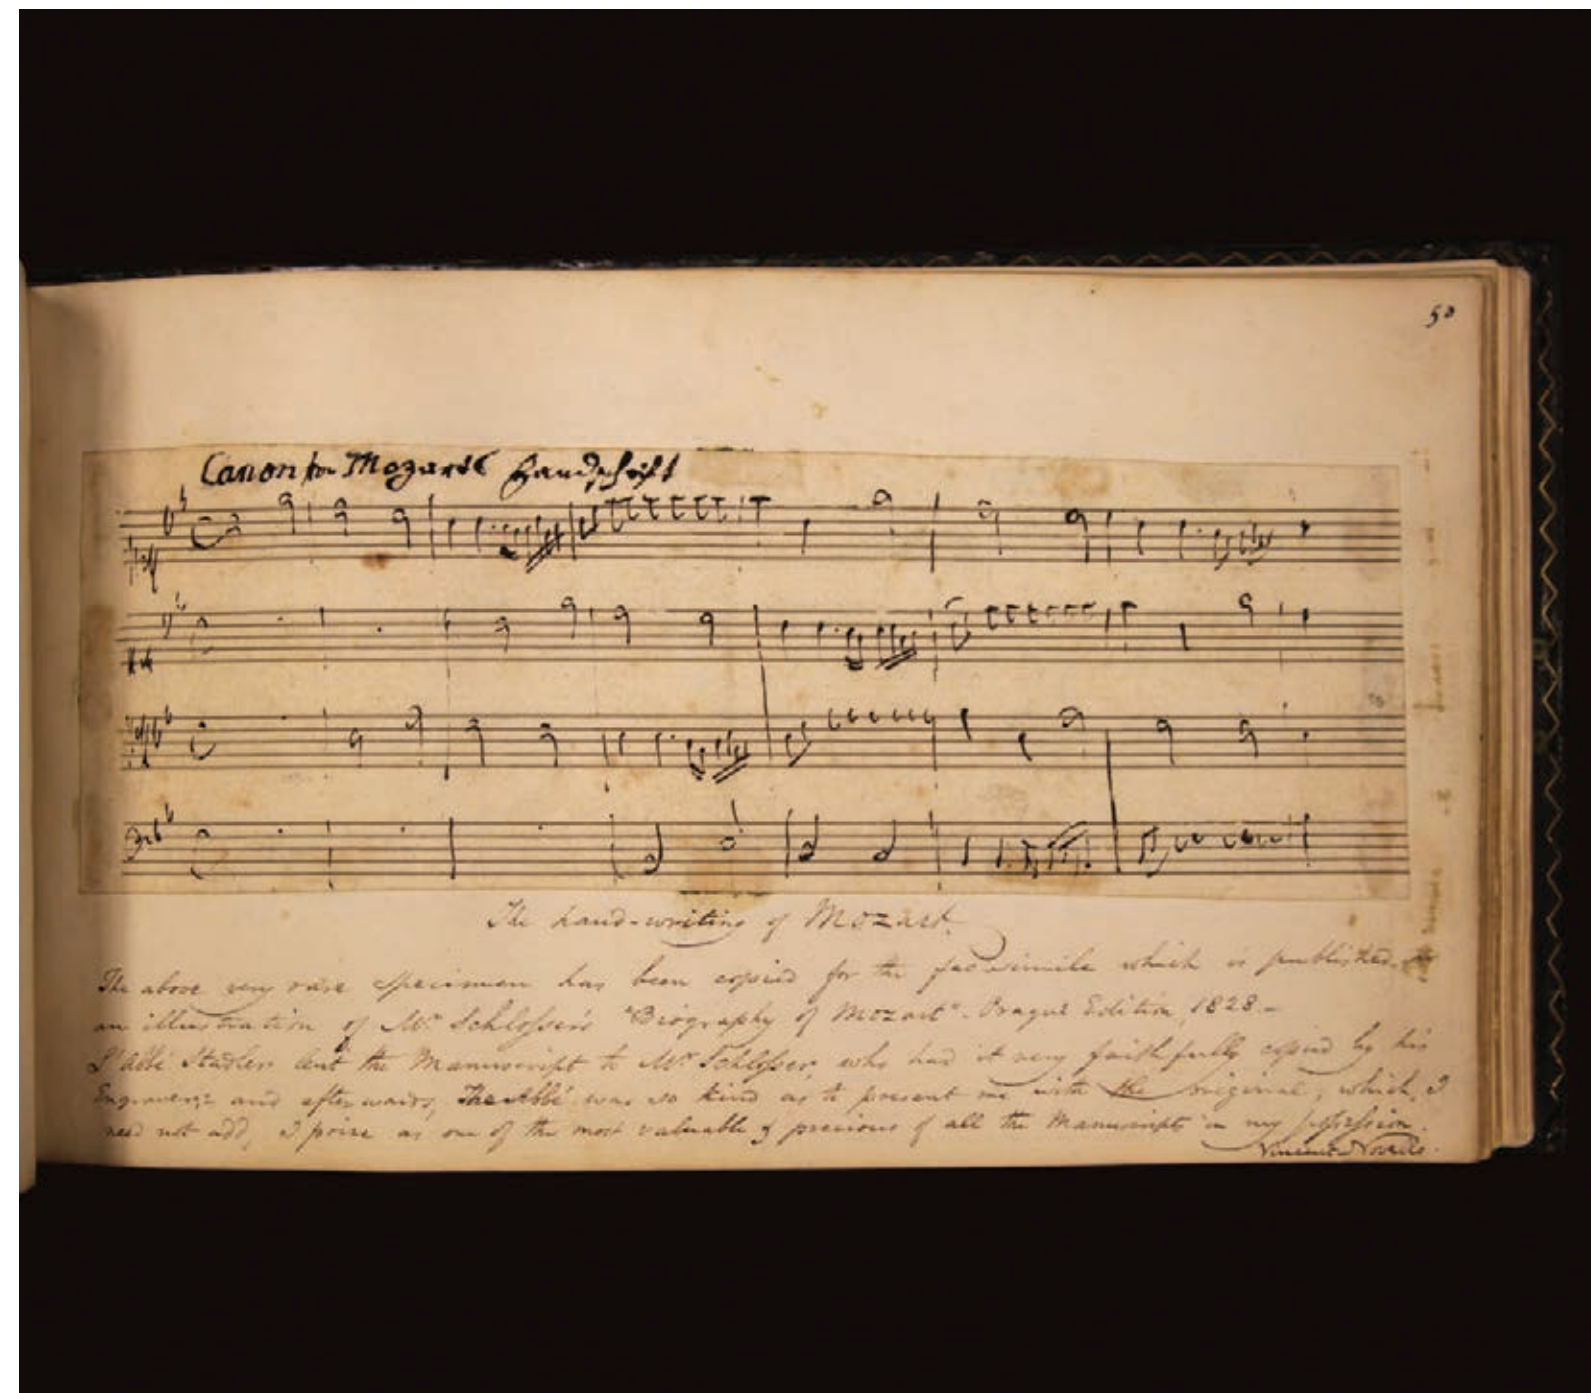 50
Canon von Mozarts Handschrift
The hand-writing of Mozart.
The above very rare specimen has been copied for the facsimile which is published as
an illustration of Mr Schlosser's "Biography of Mozart". Prague Edition, 1828 –
L'Abbé Stadler lent the Manuscript to Mr Schlosser, who had it very faithfully copied by his
Engraver; and afterwards, The Abbé was so kind as to present me with the original, which, I
need not add, I prize as one of the most valuable & precious of all the Manuscripts in my possession.
Vincent Novello.